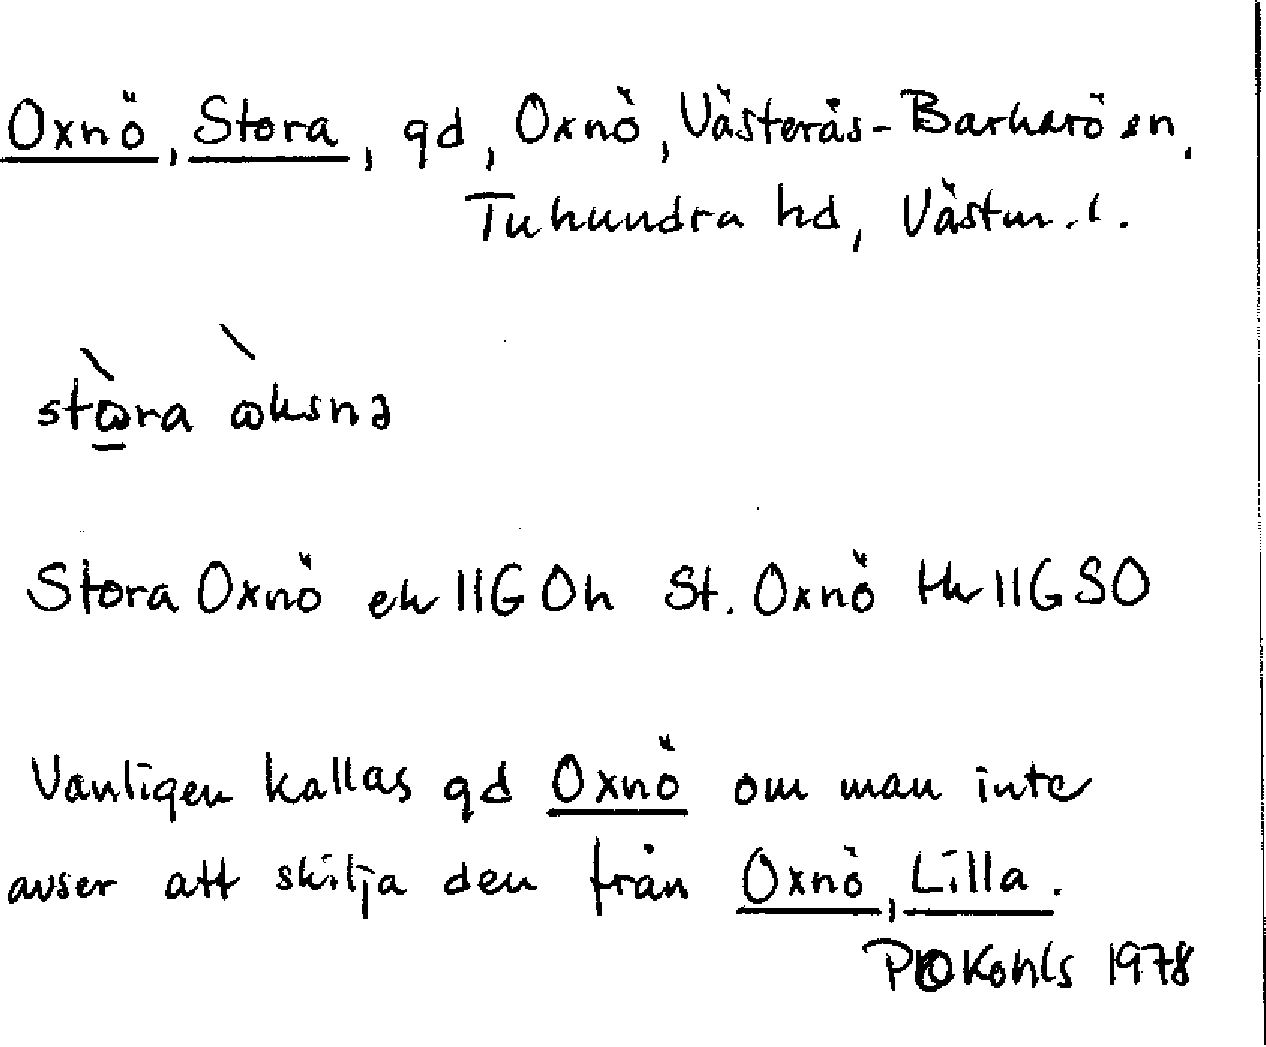 Oxnö, Stora, gd, Oxnö, Västerås-Barkarö sn,
Tuhundra hd, Västm. l.
stɷ̀ra ɷ̀ksnə
Stora Oxnö ek 11G 0h St. Oxnö tk 11G SO
Vanligen kallas gd Oxnö om man inte
avser att skilja den från Oxnö, Lilla.
Kohls 1978